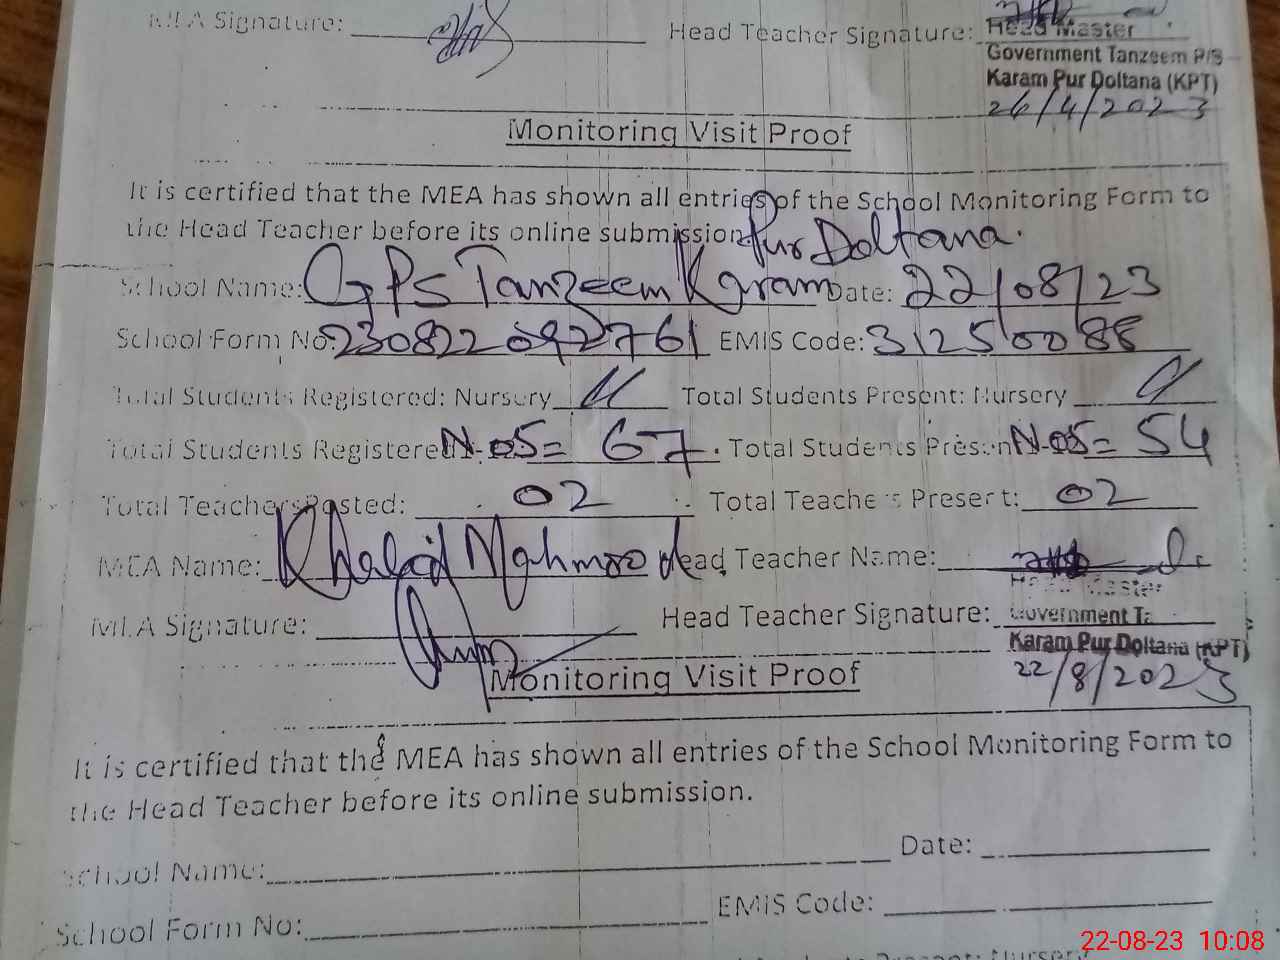 MEA Signature: Head Teacher Signature:
Head Master
Government Tanzeem P/S
Karam Pur Doltana (KPT)
26/4/2023
Monitoring Visit Proof
It is certified that the MEA has shown all entries of the School Monitoring Form to
the Head Teacher before its online submission.
Pur Doltana.
School Name: GPS Tanzeem Karam Date: 22/08/23
School Form No: 230822092761 EMIS Code: 31250088
Total Students Registered: Nursery Total Students Present: Nursery
Total Students Registered N-05= 67. Total Students Present N-05= 54
Total Teachers Posted: 02 Total Teachers Present: 02
MEA Name: Khalid Mahmood Head Teacher Name:
MEA Signature: Head Teacher Signature:
Head Master
Government Ta
Karam Pur Doltana (KPT)
22/8/2023
Monitoring Visit Proof
It is certified that the MEA has shown all entries of the School Monitoring Form to
the Head Teacher before its online submission.
School Name: Date:
School Form No: EMIS Code:
22-08-23 10:08